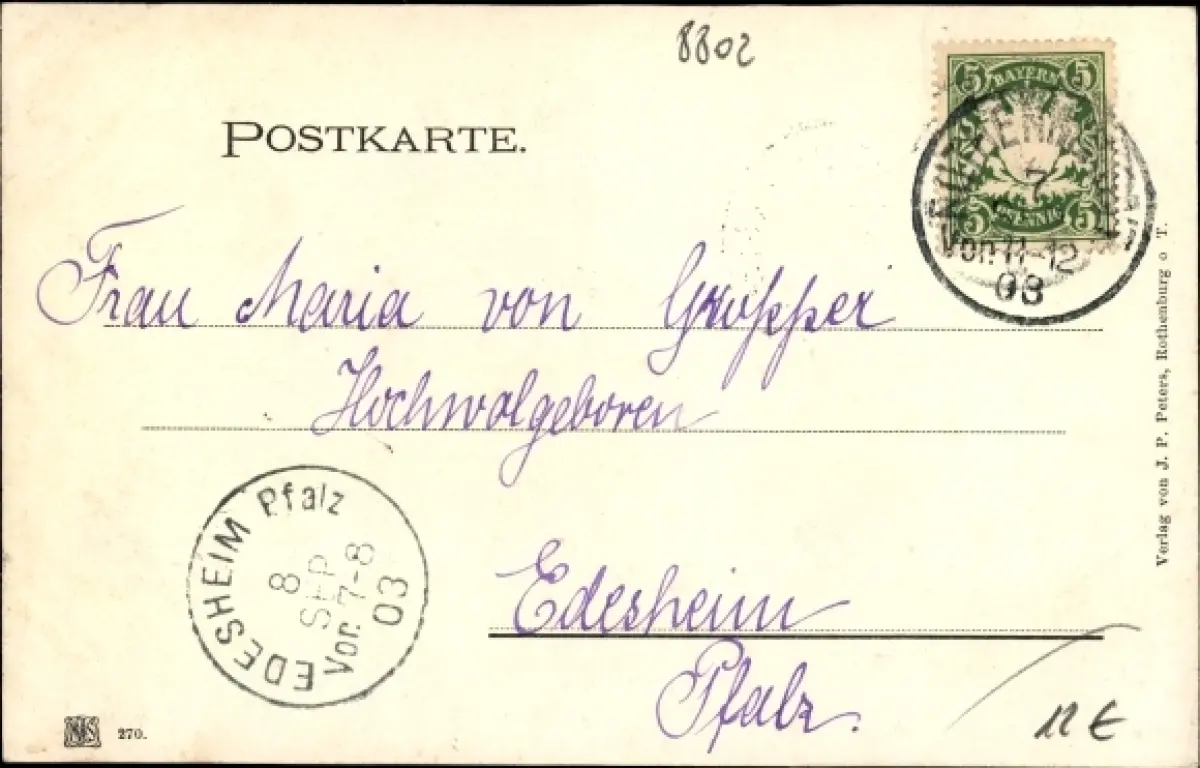 8802
POSTKARTE.
5 BAYERN 5
5 PFENNIG 5
7
Vor. 11-12
03
Frau Maria von Gropper
Hochwolgeboren
EDESHEIM Pfalz
8
SEP
Vor. 7-8
03
Edesheim
Pfalz.
Verlag von J. P. Peters, Rothenburg o T.
270.
12 €